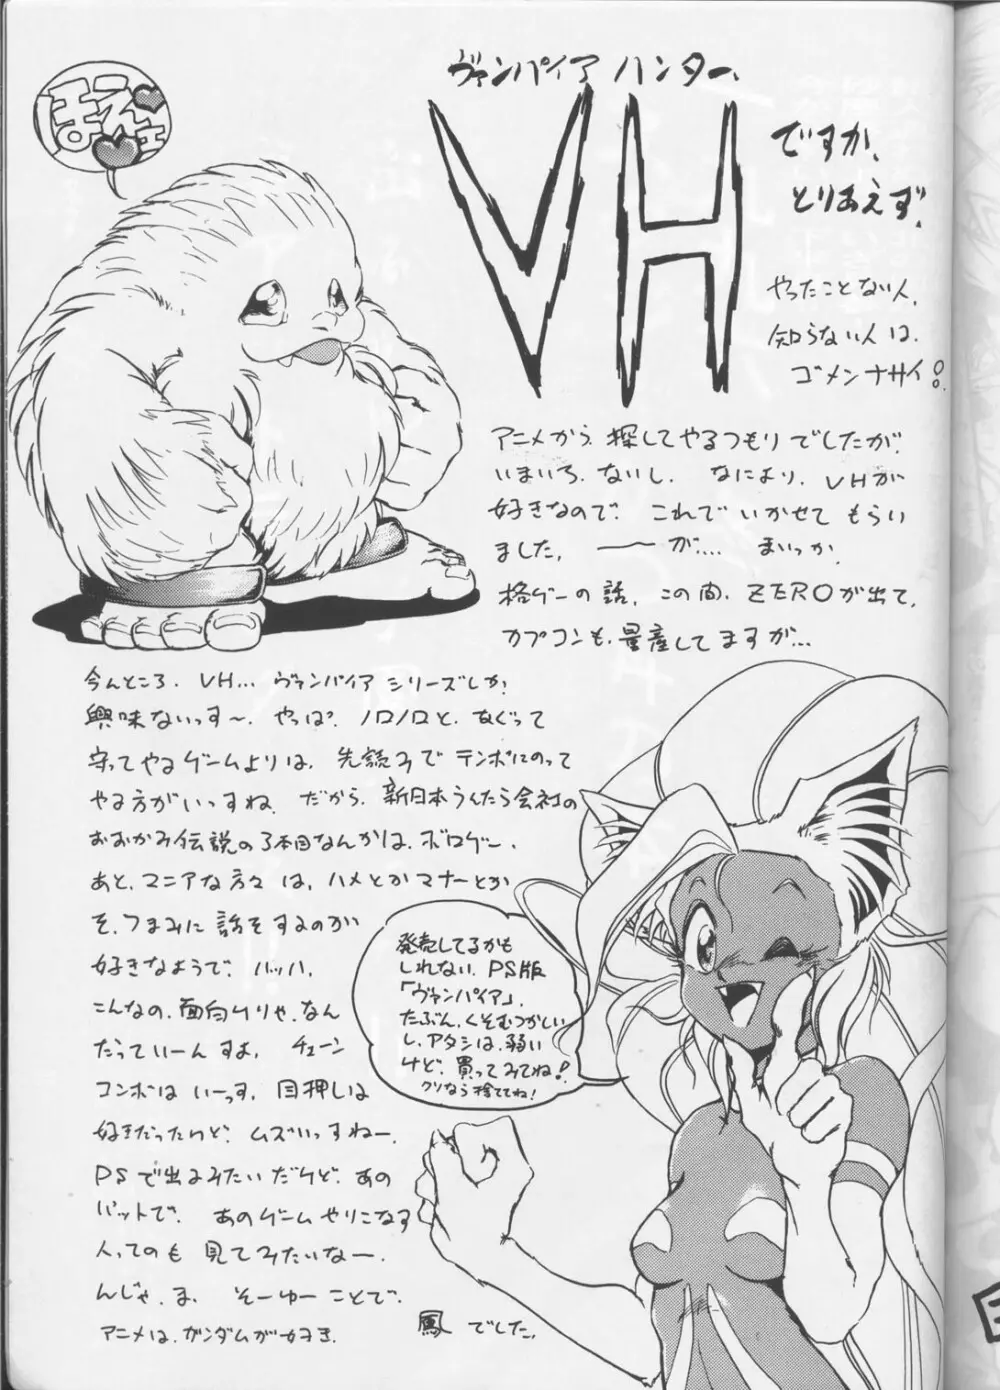 ほえェ
ヴァンパイア ハンター、
VH
ですか、
とりあえず、
やったことない人、
知らない人は、
ゴメンナサイ!
アニメから、探してやるつもりでしたが、
いまいち、ないし、なにより、VHが
好きなので、これでいかせてもらい
ました。――が…。まいっか
格ゲーの話、この間、ZEROが出て、
カプコンも、量産してますが…
今んところ、VH…ヴァンパイアシリーズしか、
興味ないっす〜、やっぱ、ノロノロと、なぐって
守ってやるゲームよりは、先読みでテンポにのって
やる方がいっすね、だから、新日本うんたら会社の
おおかみ伝説の3本目なんかは、ボロゲー、
あと、マニアな方々は、ハメとかマナーとか
そ、つまみに話をするのが
好きなようで、バッハ、
こんなの、面白けりゃ、なん
だっていーんすよ、チェーン
コンボはいーっす、目押しは
好きだったけど、ムズいっすねー、
PSで出るみたいだけど、あの
パットで、あのゲームやりこなす
人ってのも見てみたいなー、
んじゃ、ま、そーゆーことで、
アニメは、ガンダムが好き、
発売してるかも
しれない、PS版
「ヴァンパイア」、
たぶん、くそむつかしい
し、アタシは、弱い
けど、買ってみてね!
クソなら捨ててね!
鳳 でした、